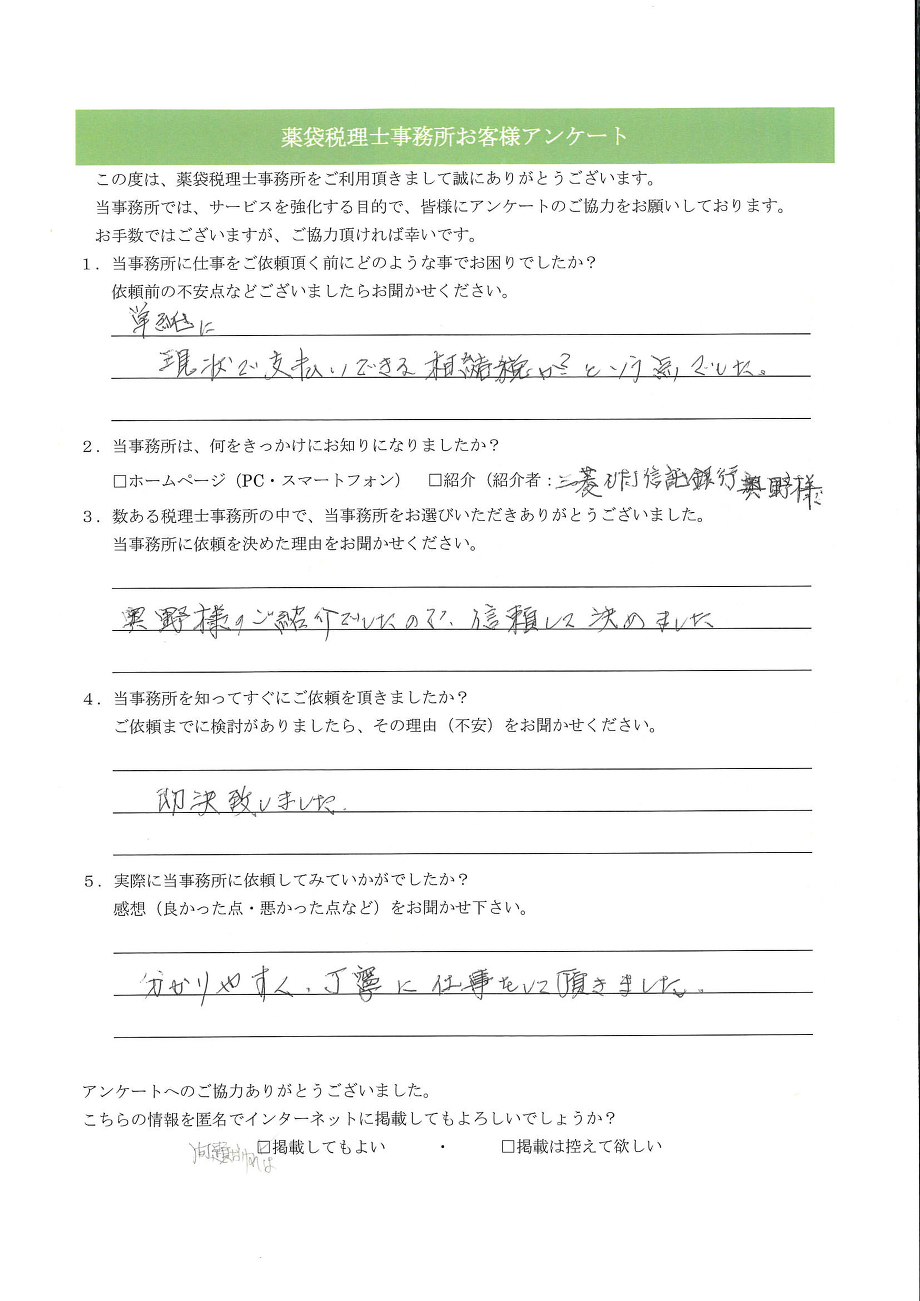 薬袋税理士事務所お客様アンケート
この度は、薬袋税理士事務所をご利用頂きまして誠にありがとうございます。
当事務所では、サービスを強化する目的で、皆様にアンケートのご協力をお願いしております。
お手数ではございますが、ご協力頂ければ幸いです。
１．当事務所に仕事をご依頼頂く前にどのような事でお困りでしたか？
依頼前の不安点などございましたらお聞かせください。
単純に
現状で支払いできる相続税か？という点でした。
２．当事務所は、何をきっかけにお知りになりましたか？
□ホームページ（PC・スマートフォン） □紹介（紹介者：三菱UFJ信託銀行奥野様
３．数ある税理士事務所の中で、当事務所をお選びいただきありがとうございました。
当事務所に依頼を決めた理由をお聞かせください。
奥野様のご紹介でしたので、信頼して決めました
４．当事務所を知ってすぐにご依頼を頂きましたか？
ご依頼までに検討がありましたら、その理由（不安）をお聞かせください。
即決致しました。
５．実際に当事務所に依頼してみていかがでしたか？
感想（良かった点・悪かった点など）をお聞かせ下さい。
分かりやすく、丁寧に仕事をして頂きました。
アンケートへのご協力ありがとうございました。
こちらの情報を匿名でインターネットに掲載してもよろしいでしょうか？
☑掲載してもよい ・ □掲載は控えて欲しい